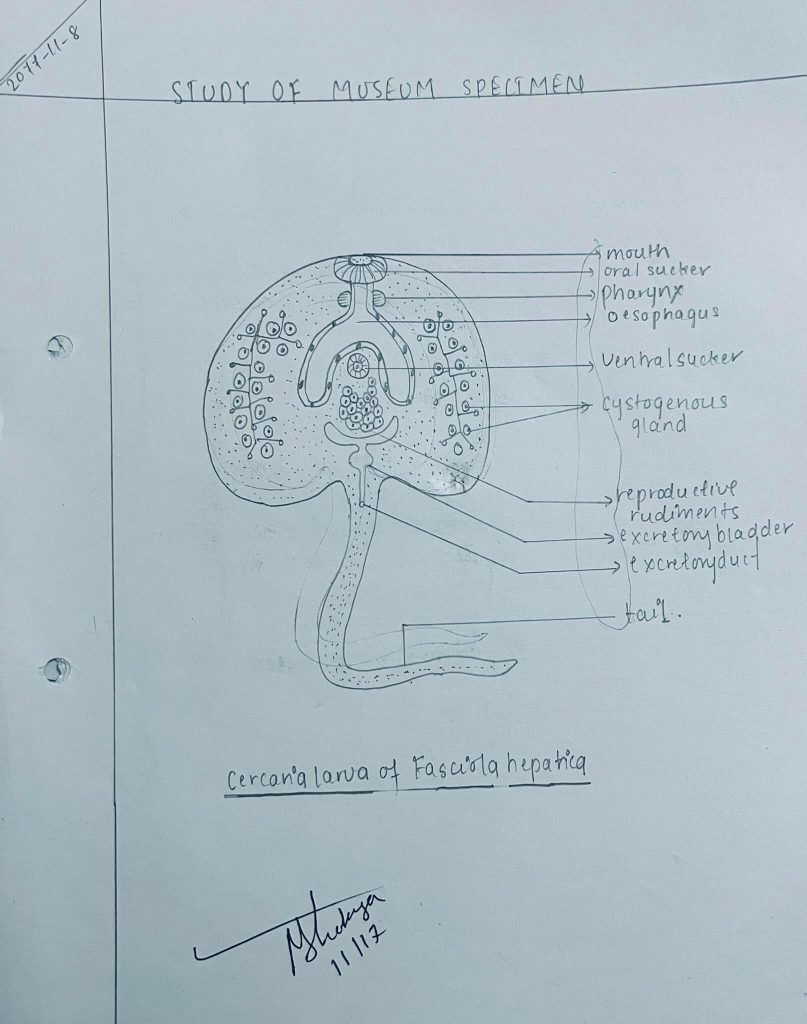 2077-11-8
STUDY OF MUSEUM SPECIMEN
mouth
oral sucker
pharynx
oesophagus
ventral sucker
cystogenous
gland
reproductive
rudiments
excretory bladder
excretory duct
tail.
Cercaria larva of Fasciola hepatica
11/17